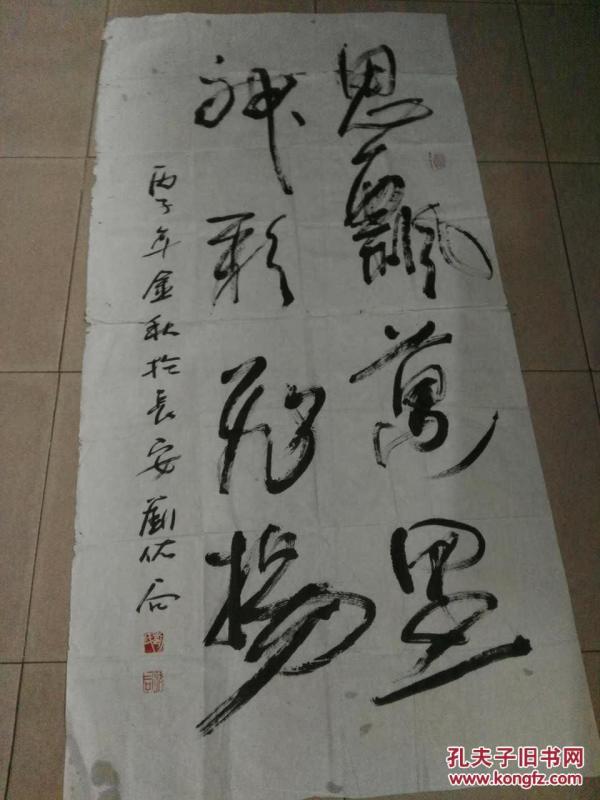 思飄萬里
神彩飛揚
丙子年金秋於長安劉
孔夫子旧书网
www.kongfz.com